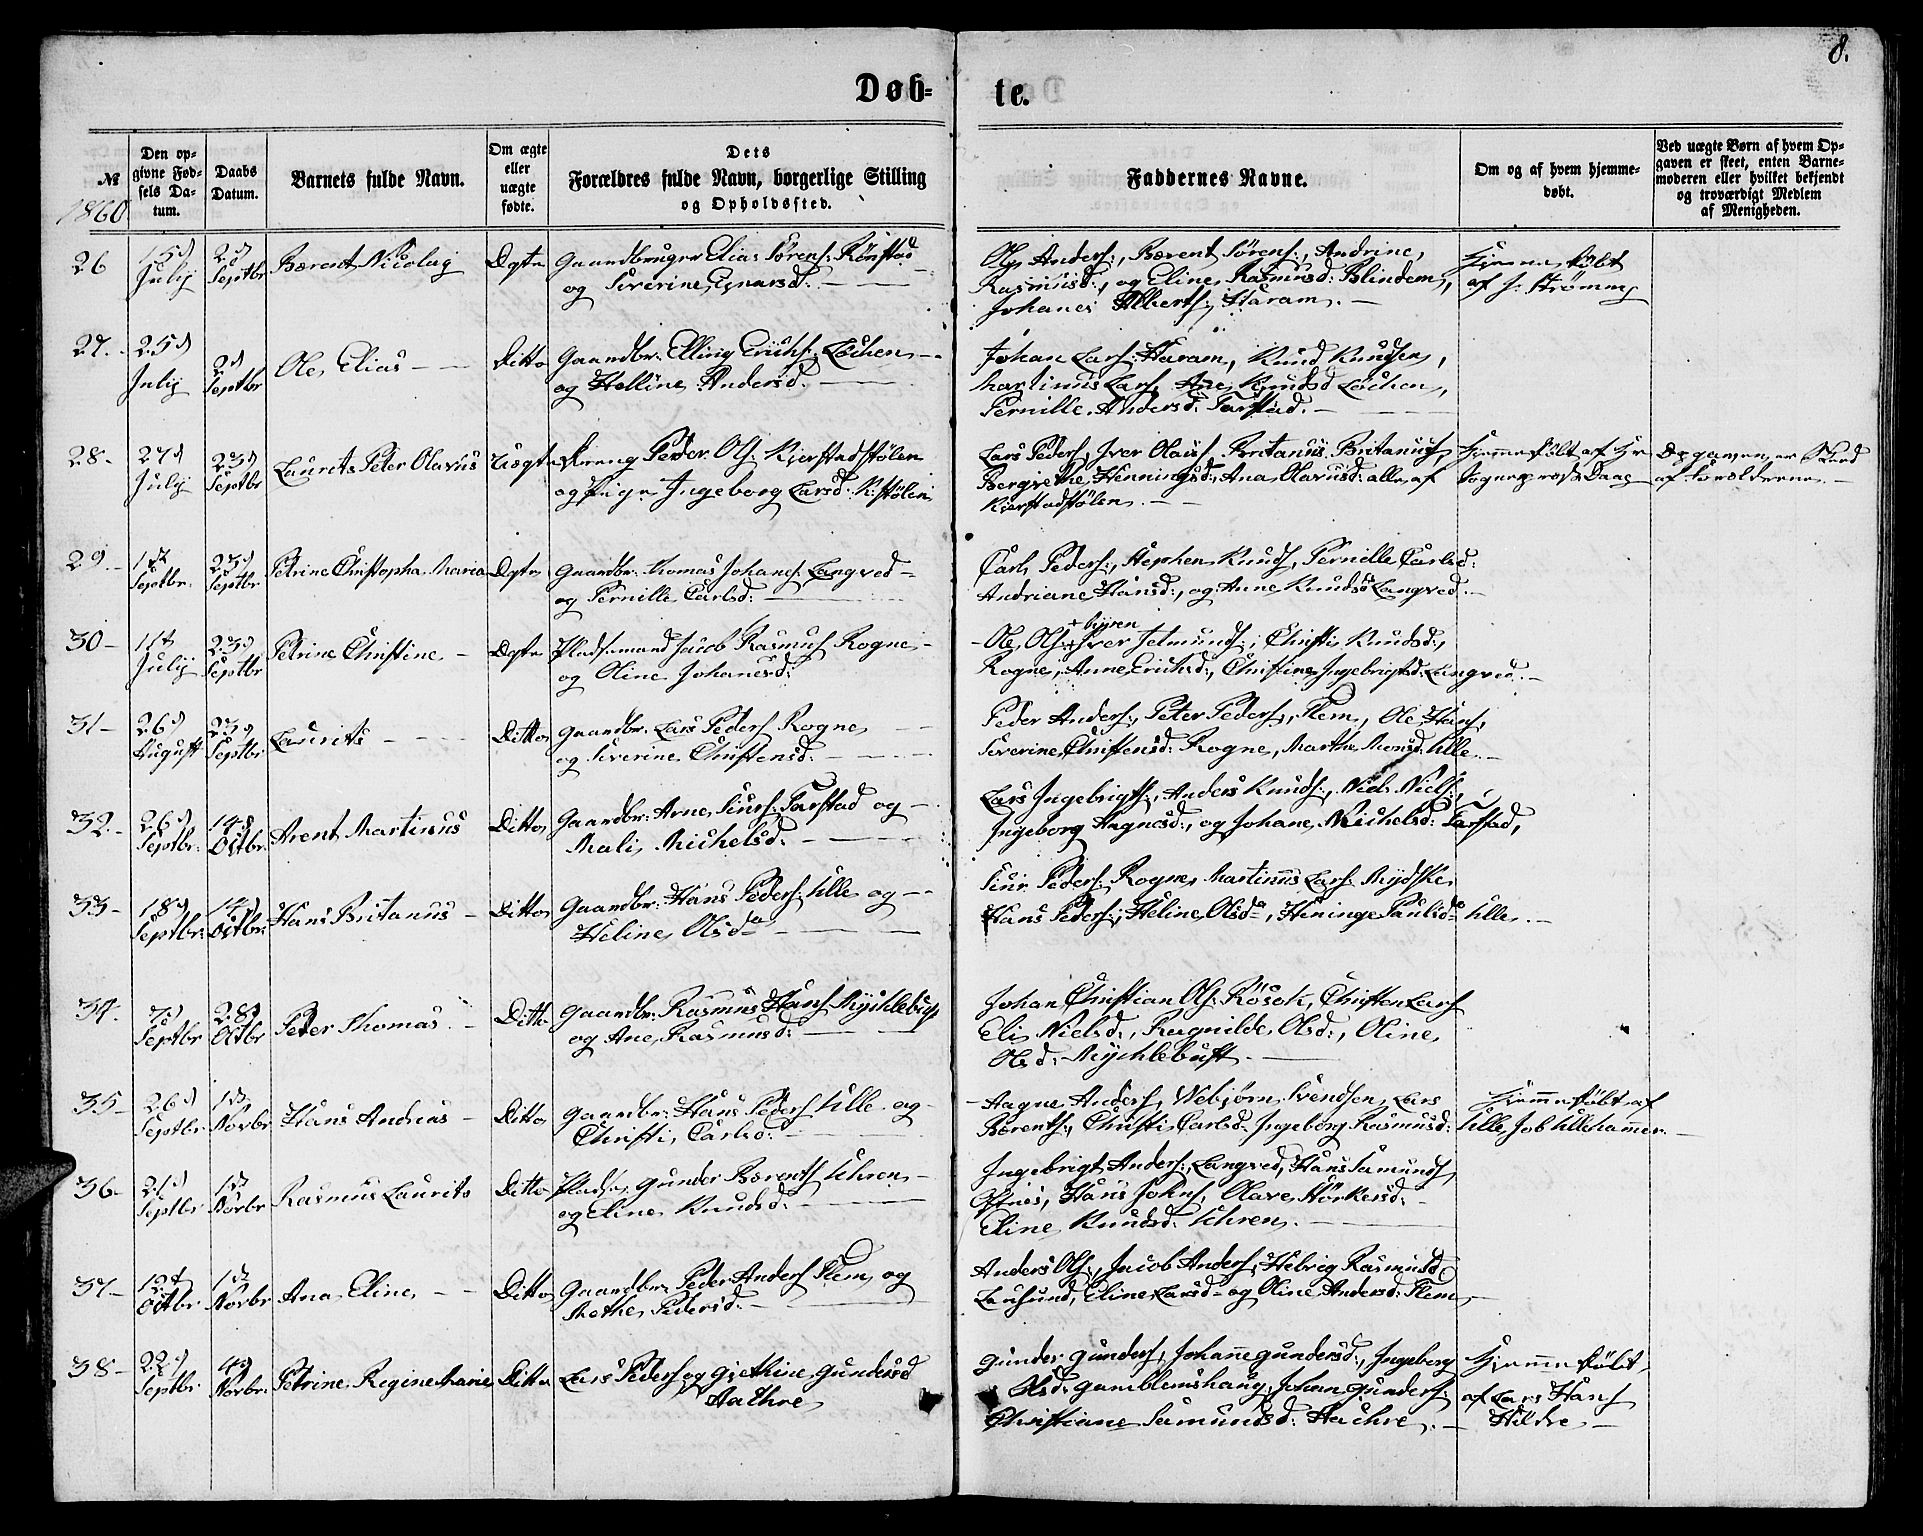 8.
Døb-
te.
№
1860
Den op-
givne Fød-
sels Da-
tum.
Daabs
Datum.
Barnets fulde Navn.
Om ægte
eller
uægte
fødte.
Dets
Forældres fulde Navn, borgerlige Stilling
og Opholdssted.
Faddernes Navne.
Om og af hvem hjemme-
døbt.
Ved uægte Børn af hvem Op-
gaven er skeet, enten Barne-
moderen eller hvilket bekjendt
og troværdigt Medlem
af Menigheden.
26
15d
Julij
2d
Septbr
Bærent Nicolay
Ægte
Gaardbruger Elias Sørens: Rønstad
og Severine Eivarsd:
Ole Anders:, Bærent Sørens:, Andrine
Rasmusd:, og Eline Rasmusd: Blindem,
Johanes Alberts: Haram.
Hjemmedøbt
af J: Strømmy
27.
25d
Julij
2d
Septbr
Ole Elias
Ditto
Gaardbr: Elling Erichs: Løchen
og Helline Andersd:
Johan Lars: Haram, Knud Knudsen,
Martinus Lars, Ane Knudsd Løchen,
Pernille Andersd: Farstad.
28-
27d
Julij
23d
Septbr
Laurits Peter Olavus
Uægte
Dreng Peder Ols: Kjerstadstølen
og Pige Ingeborg Larsd: K:stølen
Lars Peders, Iver Olais, Britanus Britanus,
Bergrethe Henningsd:, Ana Olavusd: alle af
Kjerstadstølen.
Hjemmedøbt af Hr
Sognepræst Daae
Opgaven er skeed
af Forælderne
29.
1st
Septbr.
23d
Septbr
Petrine Christopha Maria
Ægte
Gaardbr: Thomas Johans: Langved
og Pernille Carlsd:
Carl Peders:, Stephen Knuds, Pernille Carlsd:
Andriane Hansd:, og Anne Knudsd Langved.
30-
11t
Julij
23d
Septbr
Petrine Christine
Ægte
Pladsemand Jacob Rasmus Rogne
og Oline Johanesd:
+ byren
Ole Ols + Iver Jetmunds:, Christi Knudsd:,
Rogne, Anne Erichsd:, Christine Ingebrigtsd: Langved.
31-
26d
August
23d
Septbr
Laurits
Ditto
Gaardbr: Lars Peders Rogne
og Severine Christensd:
Peder Anders:, Peter Peders:, Flem, Ole Hans,
Severine Christensd: Rogne, Marthe Monsd: Ulle.
32.
26d
Septbr:
14d
Octbr.
Arent Martinus
Ditto
Gaardbr: Arne Siurs: Farstad og
Mali Michelsd:
Lars Ingebrigts:, Anders Knuds:, Niels Niels:,
Ingeborg Aagnesd:, og Johane Michelsd: Farstad,
33-
18d
Septbr:
14d
Octbr:
Hans Britanus
Ditto
Gaardbr: Hans Peders: Ulle og
Heline Olsda
Siur Peders: Rogne, Martinus Lars Mydske
Hans Peders:, Heline Olsda, Heninge Paulsda Ulle.
34.
7d
Septbr
28d
Octbr
Peder Thomas
Ditto
Gaardbr: Rasmus Hans Mychlebust
og Ane Rasmusd:
Johan Christian Ols: Røsok, Christen Lars
Eli Nielsd:, Ragnilde Olsd:, Oline
Olsd: Mychlebust.
35-
26d
Septbr
1st
Novbr
Hans Andreas
Ditto
Gaardbr: Hans Peders Ulle og
Christi Carlsd:
Aagne Anders, Webjørn Svendsen, Lars
Bærents:, Christi Carlsd: Ingeborg Rasmusd:
Hjemmedøbt af
Ulle, Job Ullehammer.
36-
21d
Septbr
1st
Novbr
Rasmus Laurits
Ditto
Plads: Gunder Bærents Uhren
og Eline Knudsd:
Ingebrigt Anders:, Langved, Hans Samunds
Ostnes, Hans Johns, Olave Størkersd:
Eline Knudsd: Uhren.
37-
13t
Octbr
1st
Novbr
Ana Eline
Ditto
Gaardbr: Peder Anders Flem og
Methe Pedersd:
Anders Ols, Jacob Anders, Helvig Rasmusd:
Lausund, Eline Larsd- og Oline Andersd: Flem
38-
22d
Septbr
4d
Novbr.
Petrine Regine Marie
Ditto
Lars Peders og Gjethine Gundersd
Hathre
Gunder Gunders, Johane Gundersd:, Ingeborg
Olsd: Gamblemshaug, Johan Gunders:
Christiane Samundsd: Hachre.
Hjemmedøbt
af Lars Hans
Hildre